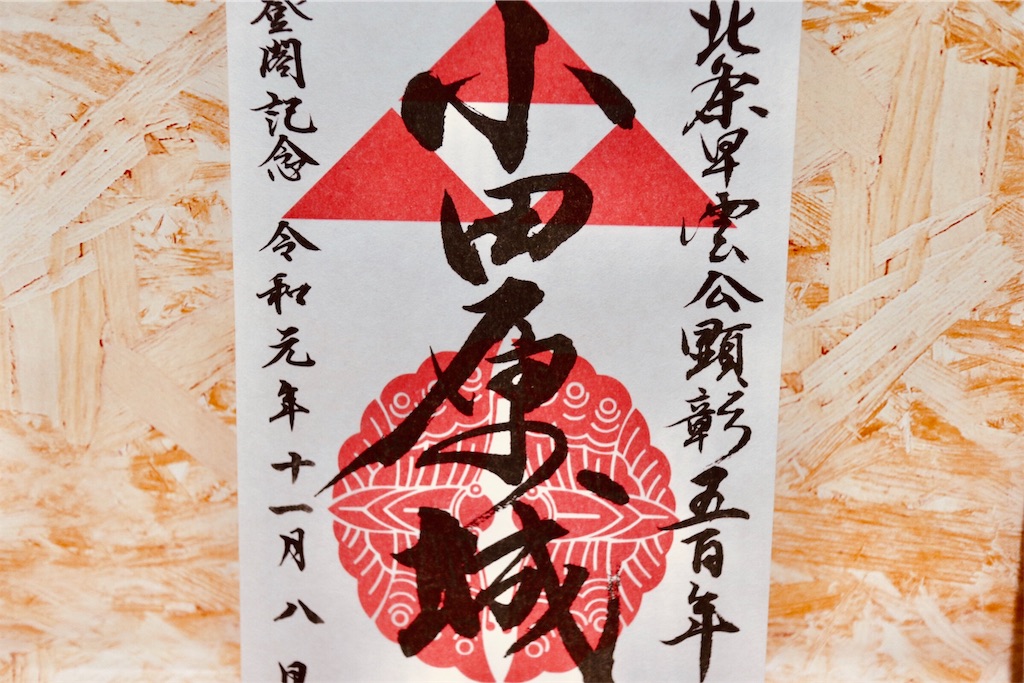 北条早雲公顕彰五百年
小田原城
登閣記念 令和元年十一月八日